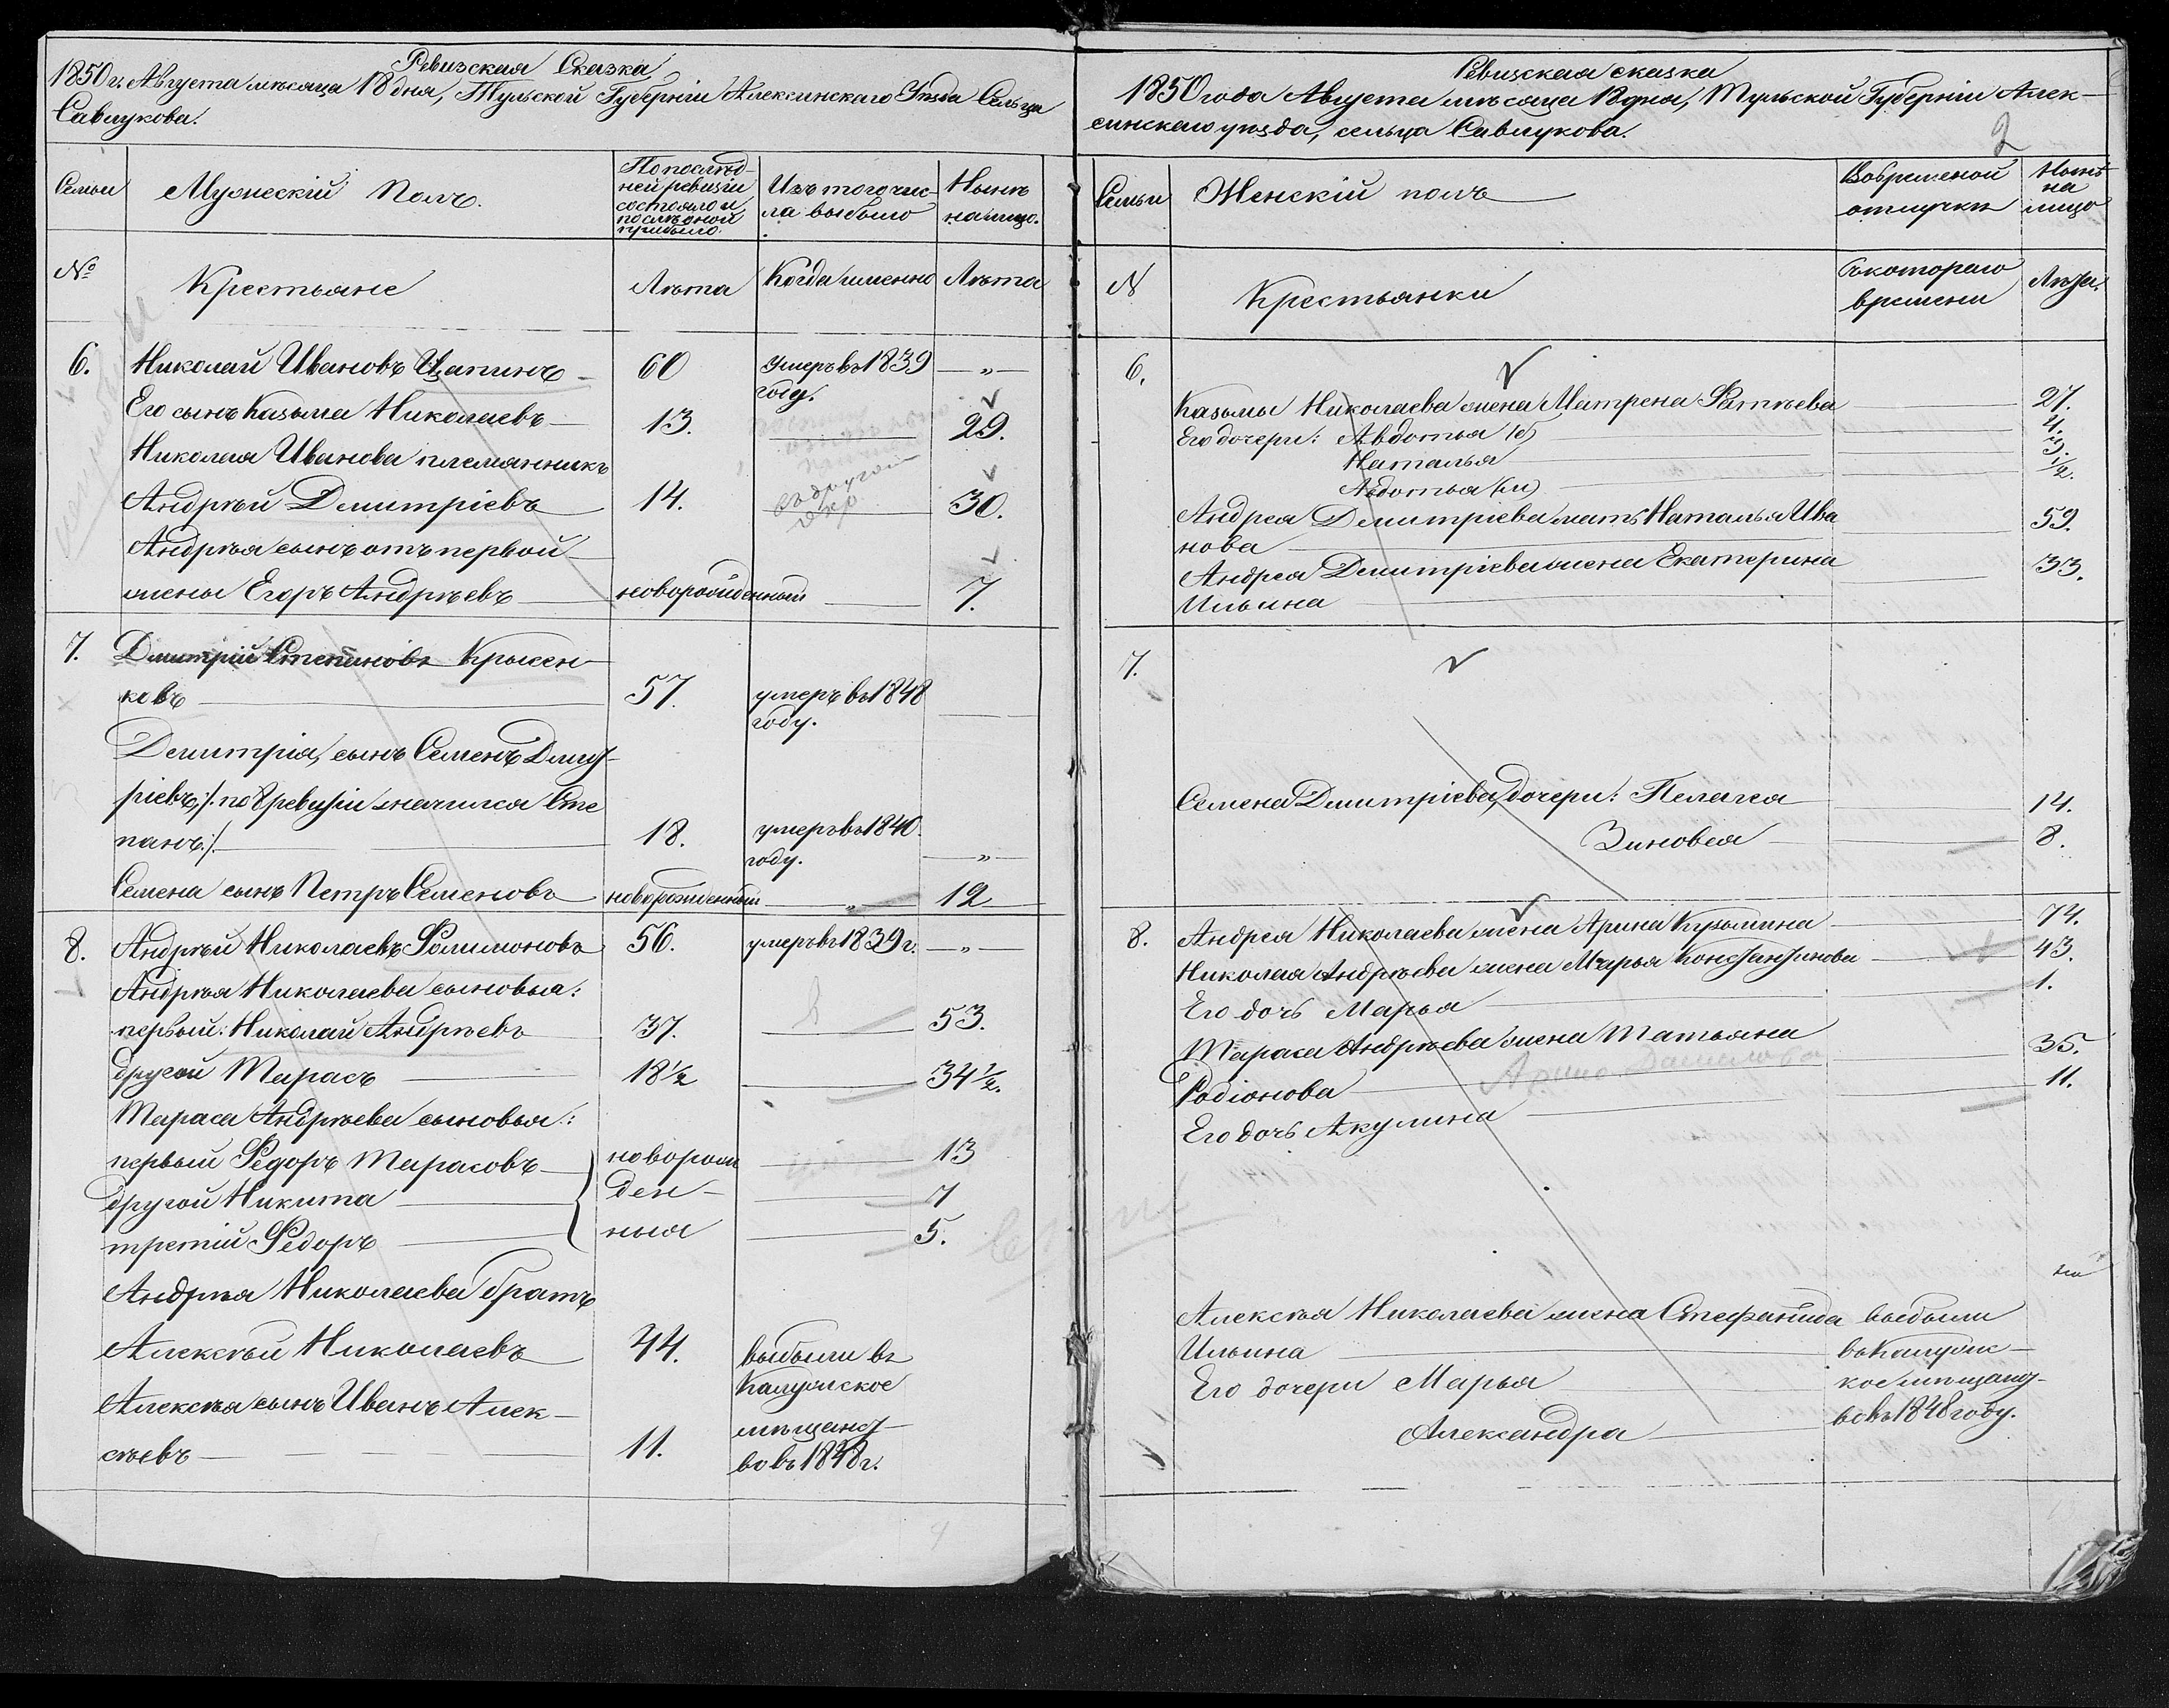 Ревизская Сказка
1850 г. Августа мѣсяца 18 дня, Тульской Губерніи Алексинскаго Уѣзда Сельца
Савлукова.
Семьи
Мужескій Полъ.
По послѣд-
ней ревизіи
состояло и
послѣ оной
прибыло.
Изъ того чис-
ла выбыло
Нынѣ
на лицо.
№
Крестьяне
Лѣта
Когда именно
Лѣта
6. Николай Ивановъ Цапинъ 60 умеръ въ 1839 году. — „ —
Его сынъ Казьма Николаевъ 13. 29.
Николая Иванова племянникъ
Андрѣй Дмитріевъ 14. 30.
въ другой
Андрѣя сынъ отъ первой
жены Егоръ Андрѣевъ новорожденный 7.
7. Дмитрій Степановъ Крысен-
ковъ 57. умеръ въ 1848 году.
Демитрія, сынъ Семенъ Дмит-
ріевъ /: по 8 ревизіи значился Сте
панъ :/ 18. умеръ въ 1840 году. — „ —
Семена сынъ Петръ Семеновъ новорожденный „ 12
8. Андрѣй Николаевъ Фолимоновъ 56. умеръ въ 1839 г. — „ —
Андрѣя Николаева сыновья:
первый: Николай Андрѣевъ 37. 53.
другой Тарасъ 18 ½ 34 ½.
Тараса Андрѣева сыновья:
первый Федоръ Тарасовъ новорож 13
другой Никита ден- 7
третій Федоръ ныя 5.
Андрѣя Николаева братъ
Алексѣй Николаевъ 44. выбыли въ
Калужское
Алексѣя сынъ Иванъ Алек-
сѣевъ 11. мѣщанст-
во въ 1848 г.
Ревизская сказка
1850 года Августа мѣсяца 18 дня, Тульской Губерніи Алек-
синскаго уѣзда, сельца Савлукова.
2
Семьи
Женскій полъ
Во временой
отлучкѣ
Нынѣ
на
лицо
N
Крестьянки
Съ котораго
времени
Лѣта.
6.
Казьмы Николаева жена Матрена Фатѣева 27.
Его дочери: Авдотья (б) 4.
Наталья 3.
Авдотья (м) ½.
Андрея Демитріева мать Наталья Ива
нова 59.
Андрея Демитріева жена Екатерина 33.
Ильина
7.
Семена Дмитріева, дочери: Пелагея 14.
Зиновея 8.
8. Андрея Николаева жена Арина Кузьмина 74.
Николая Андрѣева жена Марья Константинова 43.
Его дочь Марья 1.
Тараса Андрѣева жена Татьяна 35.
Родіонова
Арина Данилова
Его дочь Акулина 11.
Алексѣя Николаева жена Стефанида выбыли
Ильина въ Калужс-
Его дочери Марья кое мѣщанст-
Александра во въ 1848 году.